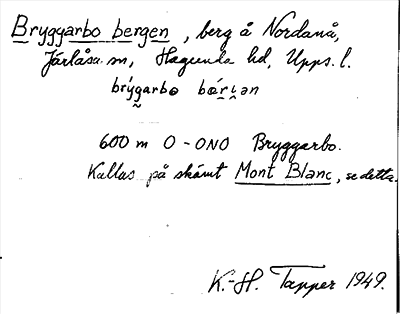 Bryggarbo bergen, berg å Nordanå,
Järlåsa sn, Hagunda hd, Upps. l.
600 m O-ONO Bryggarbo.
Kallas på skämt Mont Blanc, se detta.
K.-H. Tapper 1949.